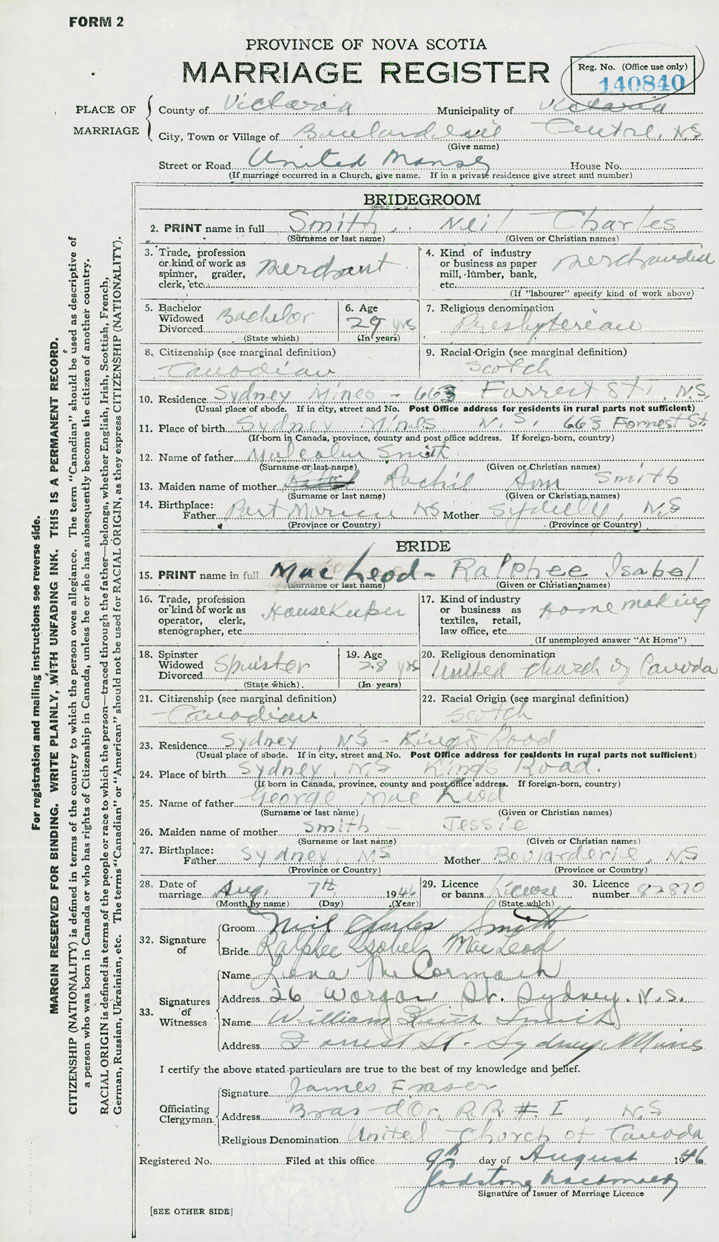 FORM 2
PROVINCE OF NOVA SCOTIA
MARRIAGE REGISTER
Reg. No. (Office use only)
140840
PLACE OF MARRIAGE
County of Victoria Municipality of Victoria
City, Town or Village of Centre, NS
(Give name)
Street or Road United Manse House No.
(If marriage occurred in a Church, give name. If in a private residence give street and number)
BRIDEGROOM
2. PRINT name in full Smith, Neil Charles
(Surname or last name) (Given or Christian names)
3. Trade, profession or kind of work as spinner, grader, clerk, etc. Merchant
4. Kind of industry or business as paper mill, lumber, bank, etc.
(If "labourer" specify kind of work above)
5. Bachelor Widowed Divorced Bachelor
(State which)
6. Age 29 yrs
(In years)
7. Religious denomination
Presbyterian
8. Citizenship (see marginal definition)
Canadian
9. Racial Origin (see marginal definition)
Scotch
10. Residence Sydney Mines - 663 Forrest St., N.S.
(Usual place of abode. If in city, street and No. Post Office address for residents in rural parts not sufficient)
11. Place of birth Sydney Mines N.S. 663 Forrest St.
(If born in Canada, province, county and post office address. If foreign-born, country)
12. Name of father Malcolm Smith
(Surname or last name) (Given or Christian names)
13. Maiden name of mother Ann Smith
(Surname or last name) (Given or Christian names)
14. Birthplace: Father Port Morien NS Mother NS
(Province or Country) (Province or Country)
BRIDE
15. PRINT name in full MacLeod - Ralphee Isabel
(Surname or last name) (Given or Christian names)
16. Trade, profession or kind of work as operator, clerk, stenographer, etc. Housekeeper
17. Kind of industry or business as textiles, retail, law office, etc. home making
(If unemployed answer "At Home")
18. Spinster Widowed Divorced Spinster
(State which)
19. Age 28 yrs
(In years)
20. Religious denomination
United Church of Canada
21. Citizenship (see marginal definition)
Canadian
22. Racial Origin (see marginal definition)
Scotch
23. Residence Sydney, NS - Kings Road
(Usual place of abode. If in city, street and No. Post Office address for residents in rural parts not sufficient)
24. Place of birth Sydney, NS Kings Road.
(If born in Canada, province, county and post office address. If foreign-born, country)
25. Name of father George MacLeod
(Surname or last name) (Given or Christian names)
26. Maiden name of mother Smith - Jessie
(Surname or last name) (Given or Christian names)
27. Birthplace: Father Sydney, NS Mother Boularderie, NS
(Province or Country) (Province or Country)
28. Date of marriage Aug. 7th 1946
(Month by name) (Day) (Year)
29. Licence or banns License
(State which)
30. Licence number 82870
32. Signature of
Groom Neil Charles Smith
Bride Ralphee Isabel MacLeod
33. Signatures of Witnesses
Name Lena McCormack
Address 26 St. Sydney. N.S.
Name William Keith Smith
Address Forrest St. Sydney Mines
I certify the above stated particulars are true to the best of my knowledge and belief.
Officiating Clergyman
Signature James Fraser
Address Bras d'Or RR # 1, NS
Religious Denomination United Church of Canada
Registered No. Filed at this office 9th day of August 1946
Signature of Issuer of Marriage Licence
[SEE OTHER SIDE]
For registration and mailing instructions see reverse side.
MARGIN RESERVED FOR BINDING. WRITE PLAINLY, WITH UNFADING INK. THIS IS A PERMANENT RECORD.
CITIZENSHIP (NATIONALITY) is defined in terms of the country to which the person owes allegiance. The term "Canadian" should be used as descriptive of
a person who was born in Canada or who has rights of Citizenship in Canada, unless he or she has subsequently become the citizen of another country.
RACIAL ORIGIN is defined in terms of the people or race to which the person—traced through the father—belongs, whether English, Irish, Scottish, French,
German, Russian, Ukrainian, etc. The terms "Canadian" or "American" should not be used for RACIAL ORIGIN, as they express CITIZENSHIP (NATIONALITY).